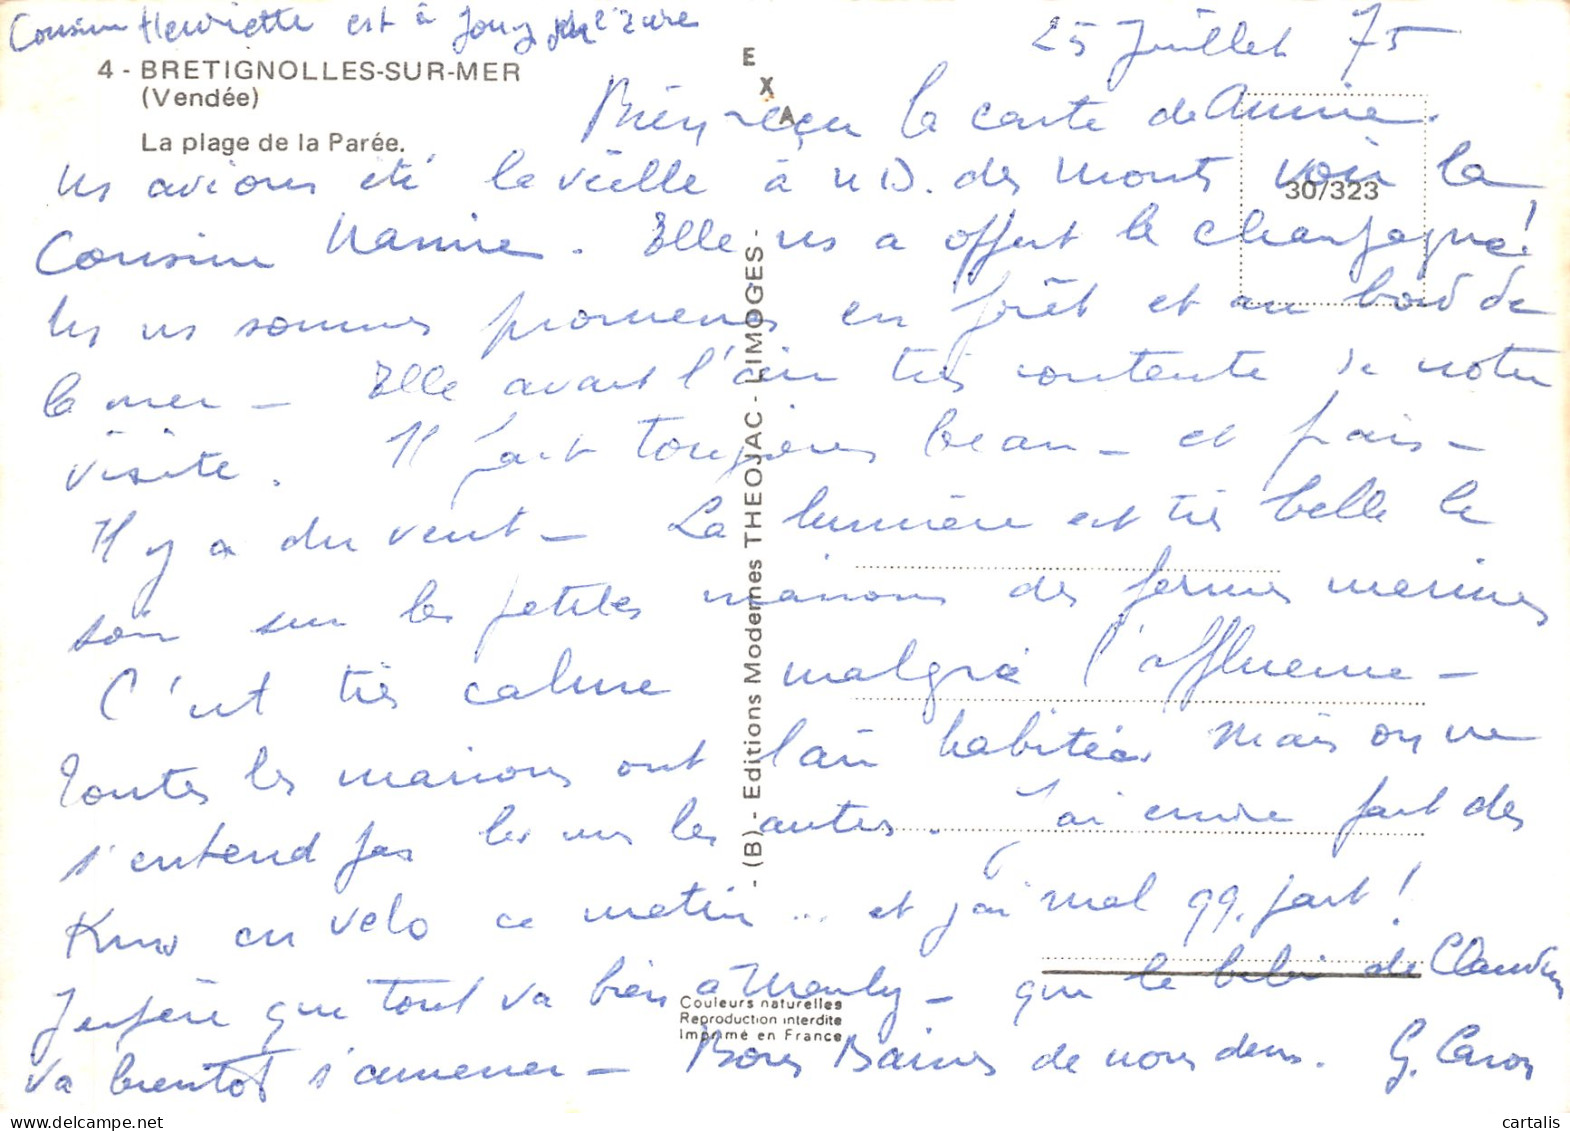 Cousine Henriette est à Jouy sur l'Eure
25 Juillet 75
4 - BRETIGNOLLES-SUR-MER
(Vendée)
La plage de la Parée.
EXA
30/323
Bien reçu la carte de Annie.
Ns avions été la veille à N D. des Monts voir la
Cousine Nannie. Elle ns a offert le champagne!
Ns ns sommes promenés en forêt et au bord de
la mer - Elle avait l'air très contente de notre
visite. Il fait toujours beau - et frais -
Il y a du vent - La lumière est très belle le
soir sur les petites maisons des fermes marines
C'est très calme malgré l'affluence -
Toutes les maisons ont l'air habitées mais on ne
s'entend pas les uns les autres. J'ai encore fait des
Kms en vélo ce matin ... et j'ai mal qq. part!
J'espère que tout va bien à - que le bébé de
va bientôt s'amener - Bons Baisers de nous deux. G. Caron
- (B) - Editions Modernes THEOJAC - LIMOGES -
Couleurs naturelles
Reproduction interdite
Imprimé en France
cartalis